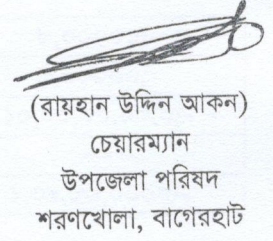 (রায়হান উদ্দিন আকন)
চেয়ারম্যান
উপজেলা পরিষদ
শরণখোলা, বাগেরহাট